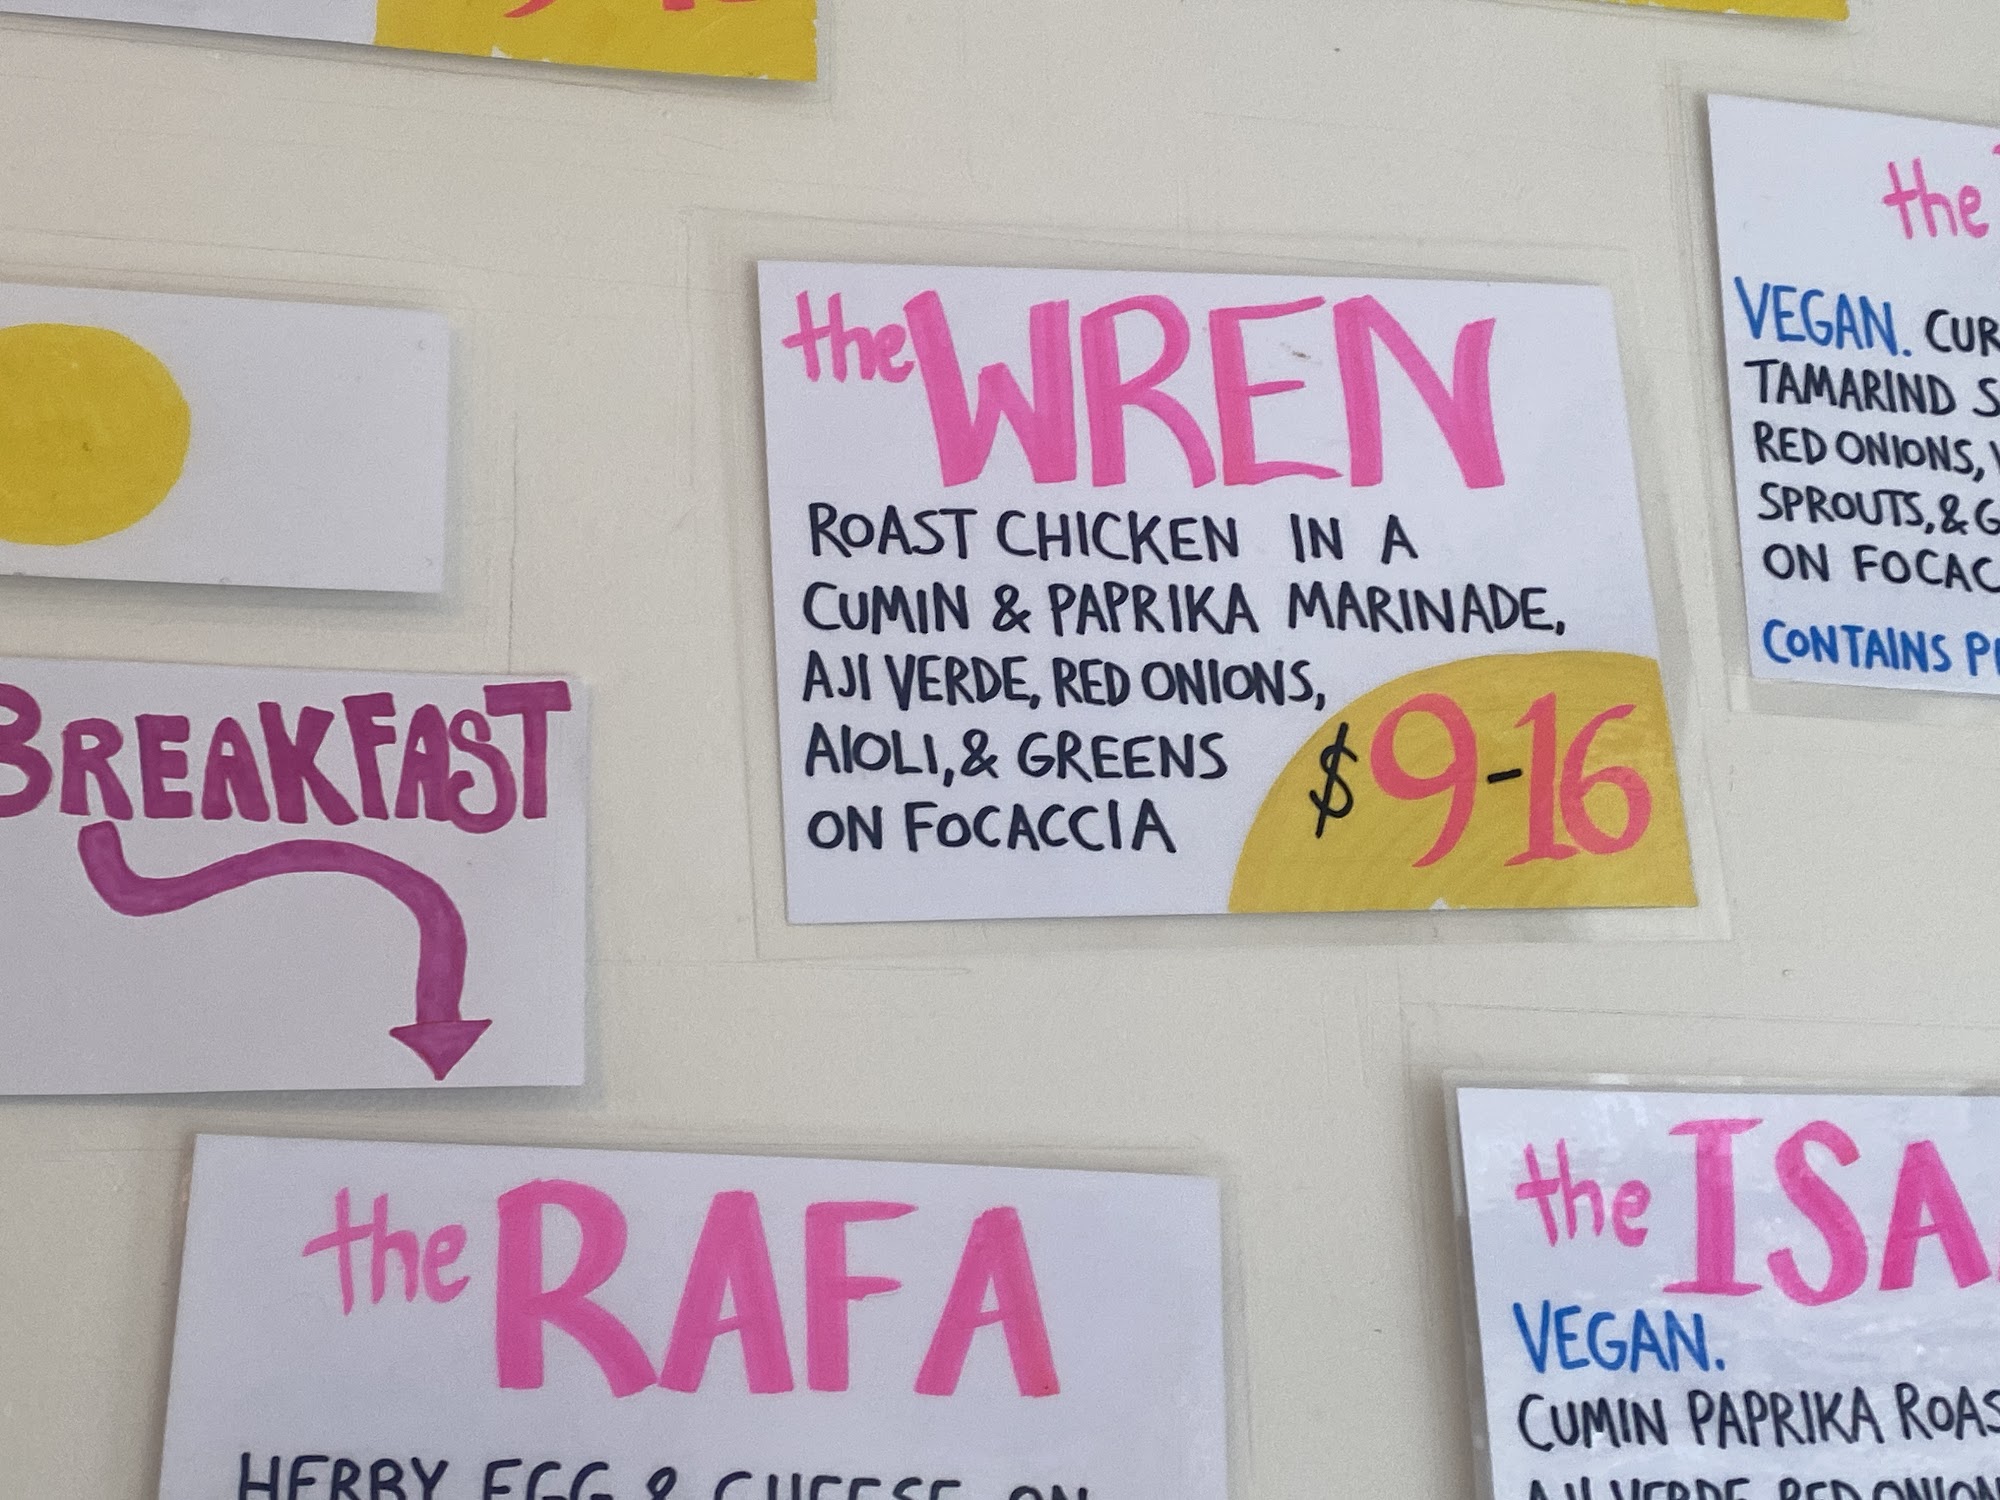 the WREN
ROAST CHICKEN IN A
CUMIN & PAPRIKA MARINADE,
AJI VERDE, RED ONIONS,
AIOLI, & GREENS
ON FOCACCIA
$9-16
the
VEGAN. CUR
TAMARIND S
RED ONIONS,
SPROUTS, & G
ON FOCAC
CONTAINS
BREAKFAST
the RAFA
HERBY EGG & CHEESE ON
the ISA
VEGAN.
CUMIN PAPRIKA ROAS
AJI VERDE, RED ONION